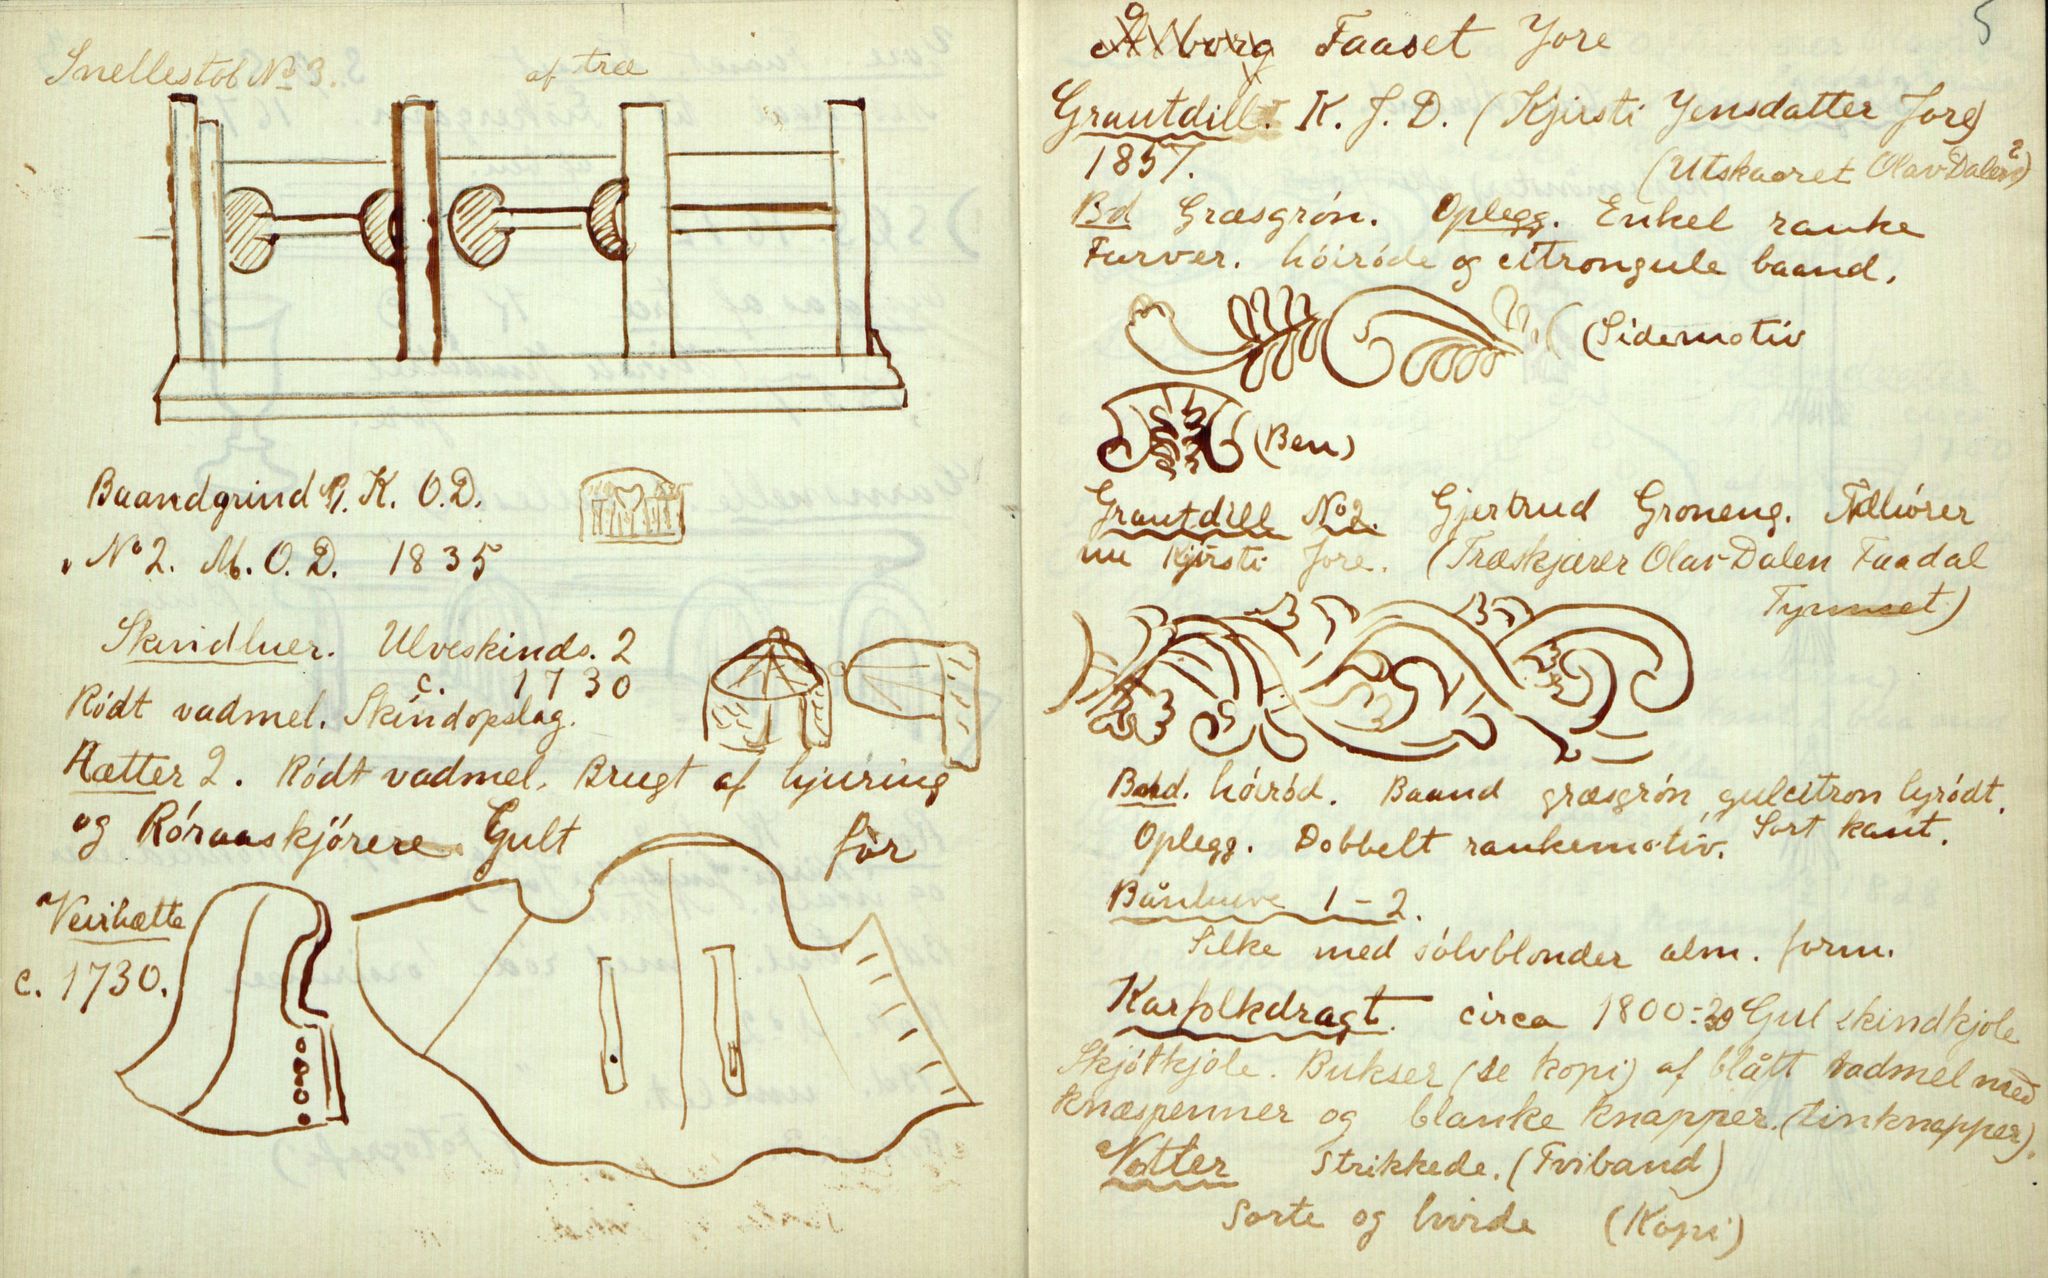 Snellestol No 3. af træ
Baandgrind K. O. D.
" No 2. M. O. D. 1835
Skindluer. Ulveskinds. 2
c. 1730
Rödt vadmel. Skindopslag.
Hætter 2. Rödt vadmel. Brugt af hjuring
og Röraaskjörere Gult för
Veirhætte
c. 1730.
5
Faaset Jore
Grautdill. K. J. D. (Kjirsti Jensdatter Jore)
1857. (Utskaaret Olav Dalen?)
Bd Græsgrön. Oplegg. Enkel ranke
Farver. höiröde og citrongule baand.
(Sidemotiv
(Ben)
Grautdill No 2. Gjertrud Groneng. Tilhörer
nu Kjirsti Jore. (Træskjærer Olav Dalen Faadal
Tynnset.)
Bund. höiröd. Baand græsgrön gulcitron lysrödt.
Oplegg. Dobbelt rankemotiv. Sort kant.
Bånhuve 1-2.
Silke med sölvblonder alm. form.
Karfolkdragt. circa 1800-30 Gul skindkjole
Skjötkjole. Bukser (se kopi) af blått vadmel med
knæspenner og blanke knapper. (tinknapper).
Votter Strikkede. (Tviband)
Sorte og hvide (Kopi)